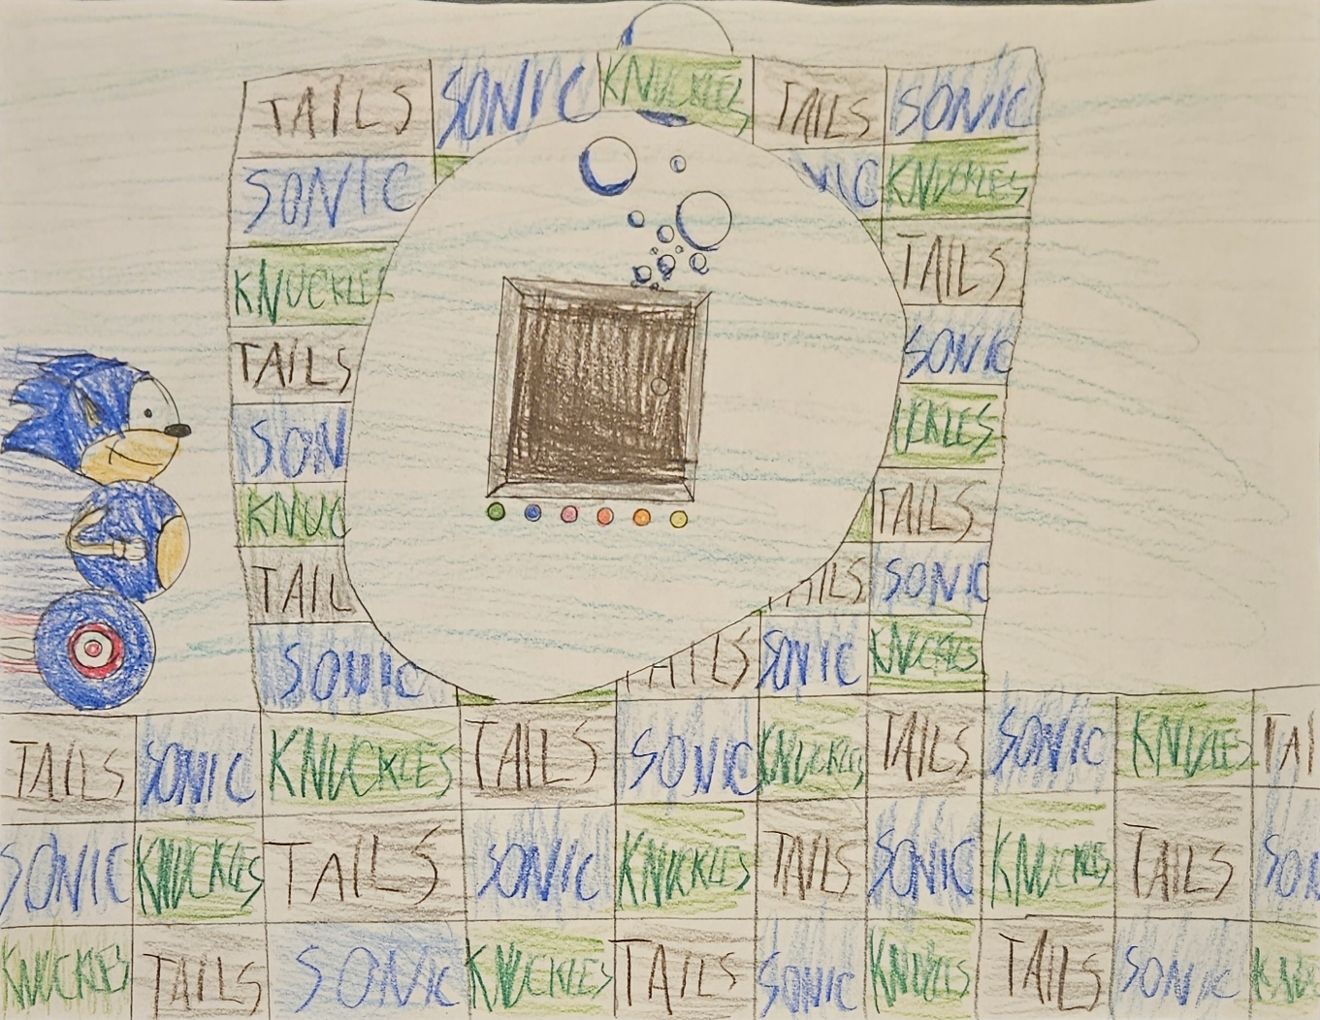 TAILS SONIC KNUCKLES TAILS SONIC
SONIC NIC KNUCKLES
KNUCKLES TAILS
TAILS SONIC
SON CKLES
KNUC TAILS
TAIL AILS SONIC
SONIC TAILS SONIC KNUCKLES
TAILS SONIC KNUCKLES TAILS SONIC KNUCKLES TAILS SONIC KNUCLES TAI
SONIC KNUCKLES TAILS SONIC KNUCKLES TAILS SONIC KNUCKLES TAILS SON
KNUCKLES TAILS SONIC KNUCKLES TAILS SONIC KNUCLES TAILS SONIC KNU